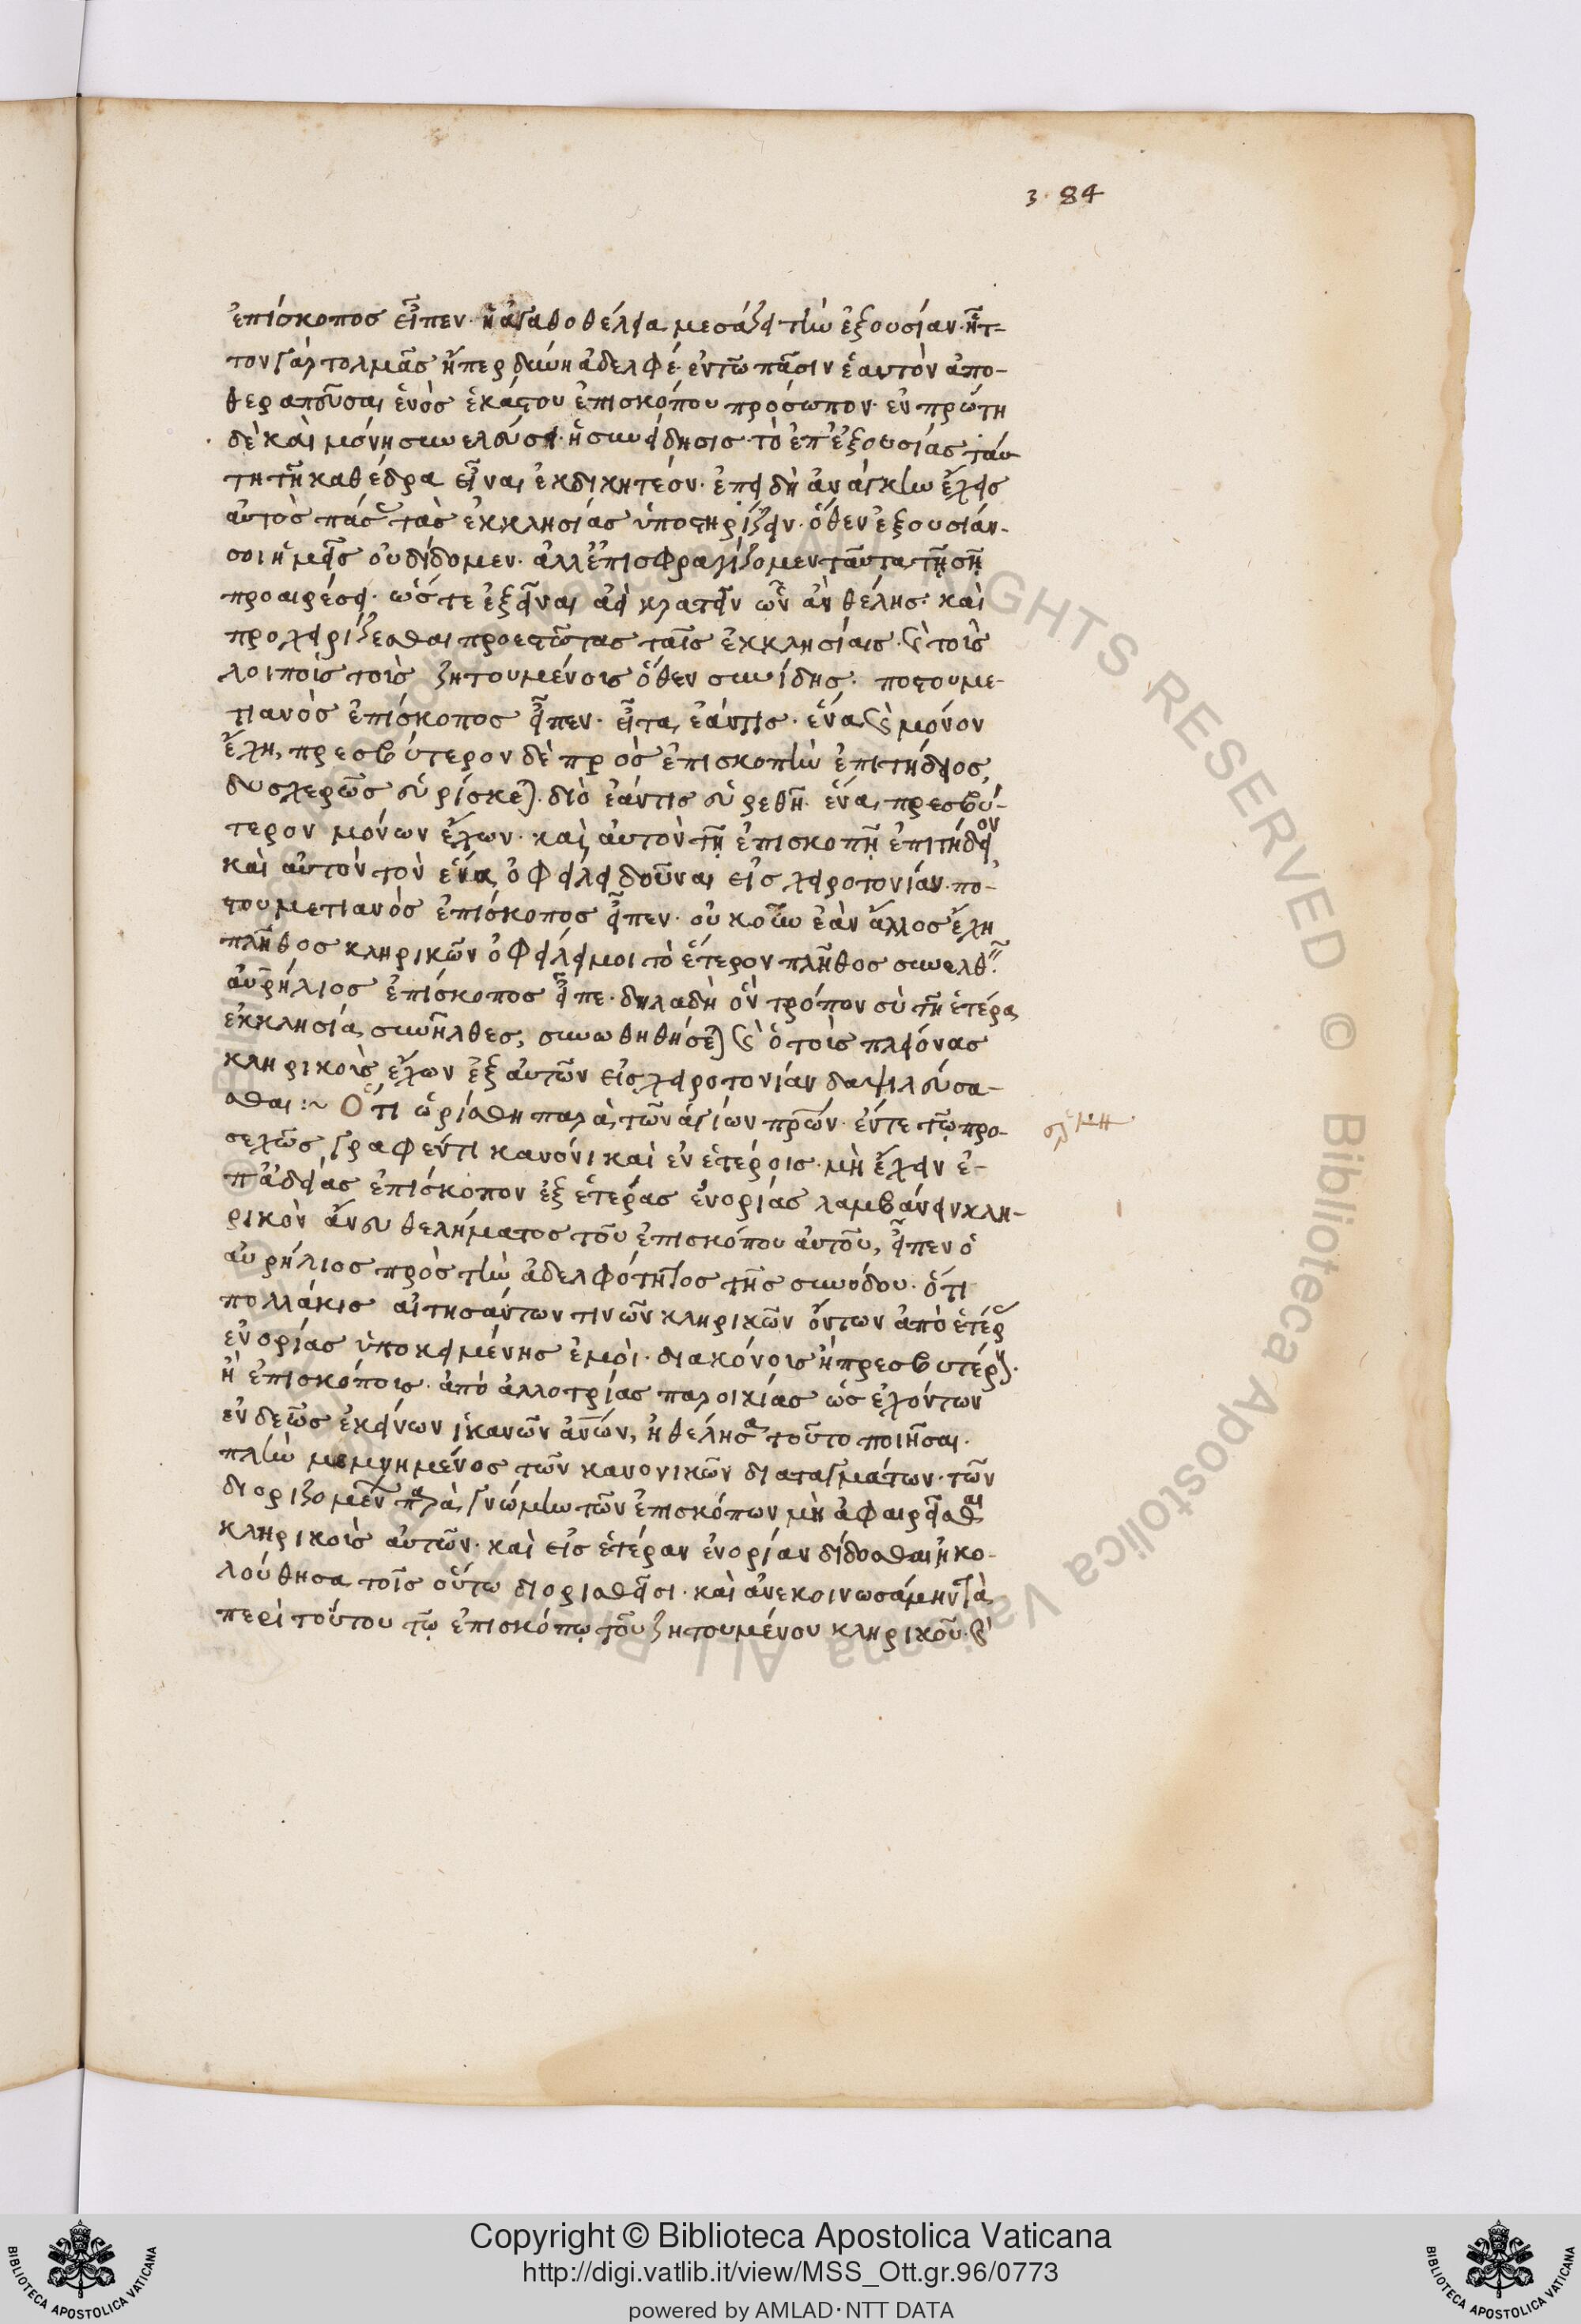 3·84
ἐπίσκοπος εἶπεν· ἡ ἀγαθοθέλεια μεσάζει τὴν ἐξουσίαν· ἧτ-
τον γὰρ τολμᾶς ἤπερ δύνῃ ἀδελφέ· ἐν τῶ πᾶσιν ἑαυτὸν ἀπο-
θεραπεῦσαι ἑνὸς ἑκάστου ἐπισκόπου πρόσωπον· ἐν πρώτη
δὲ καὶ μόνη συνελεύσει· ἡ συνείδησις· τὸ ἐπ' ἐξουσίας ταύ
τη τῆ καθέδρα εἶναι ἐκδικητέον· ἐπειδὴ ἀνάγκην ἔχεις
αὐτὸς πάσας τὰς ἐκκλησίας ὑποστηρίζειν· ὅθεν ἐξουσίαν·
σοι ἡμεῖς οὐ δίδομεν· ἀλλ' ἐπισφραγίζομεν ταῦτα τῇ σῇ
προαιρέσει· ὥστε ἐξεῖναι ἀεὶ κρατεῖν ὧν ἂν θέλης· καὶ
προχειρίζεσθαι προεστῶτας ταῖς ἐκκλησίαις· καὶ τοῖς
λοιποῖς τοῖς ζητουμένοις ὅθεν συνίδης· ποστουμε-
τιανὸς ἐπίσκοπος εἶπεν· εἶτα ἐάν τις· ἕνα καὶ μόνον
ἔχη, πρεσβύτερον δὲ πρὸς ἐπισκοπὴν ἐπιτήδειος,
δυσχερῶς εὑρίσκεται· διὸ ἐάν τις εὑρεθῆ ἕνα πρεσβύ-
τερον μόνων ἔχων· καὶ αὐτὸν τῇ ἐπισκοπῇ ἐπιτήδειον
καὶ αὐτὸν τὸν ἕνα ὀφείλει δοῦναι εἰς χειροτονίαν· πο-
στουμετιανὸς ἐπίσκοπος εἶπεν· οὐκοῦν ἐὰν ἄλλος ἔχη
πλῆθος κληρικῶν ὀφείλει μοι τὸ ἕτερον πλῆθος συνελθεῖν·
αὐρήλιος ἐπίσκοπος εἶπε· δηλαδὴ ὃν τρόπον σὺ τῆ ἑτέρα
ἐκκλησία συνῆλθες, συνωθηθήσεται καὶ ὁ τοῖς πλείονας
κληρικοῖς ἔχων ἐξ αὐτῶν εἰς χειροτονίαν δαψιλεύσα-
σθαι :~ Ὅτι ὡρίσθη παρὰ τῶν ἁγίων πρῶν· ἔν τε τῷ προ-
σεχῶς γραφέντι κανόνι καὶ ἐν ἑτέροις· μὴ ἔχειν ἐ-
π' ἀδείας ἐπίσκοπον ἐξ ἑτέρας ἐνορίας λαμβάνειν κλη-
ρικὸν ἄνευ θελήματος τοῦ ἐπισκόπου αὐτοῦ, εἶπεν ὁ
αὐρήλιος πρὸς τὴν ἀδελφότητος τῆς συνόδου· ὅτι
πολλάκις αἰτησάντων τινῶν κληρικῶν ὄντων ἀπὸ ἑτέρας
ἐνορίας ὑποκειμένης ἐμοὶ· διακόνοις ἢ πρεσβυτέροις·
ἢ ἐπισκόποις· ἀπὸ ἀλλοτρίας παροικίας ὡς ἐχόντων
ἐνδεῶς ἐκείνων ἱκανῶν ἀνῶν, ἠθέλησα τοῦτο ποιῆσαι·
πλὴν μεμνημένος τῶν κανονικῶν διαταγμάτων· τῶν
διοριζομένων παρὰ γνώμην τῶν ἐπισκόπων μὴ ἀφαιρεῖσθαι
κληρικοῖς αὐτῶν· καὶ εἰς ἑτέραν ἐνορίαν δίδοσθαι ἠκο-
λούθησα τοῖς οὕτω διορισθεῖσι· καὶ ἀνεκοινωσάμην τὰ
περὶ τούτου τῷ ἐπισκόπῳ τοῦ ζητουμένου κληρικοῦ· καὶ
Copyright © Biblioteca Apostolica Vaticana
http://digi.vatlib.it/view/MSS_Ott.gr.96/0773
powered by AMLAD·NTT DATA
BIBLIOTECA APOSTOLICA VATICANA
BIBLIOTECA APOSTOLICA VATICANA